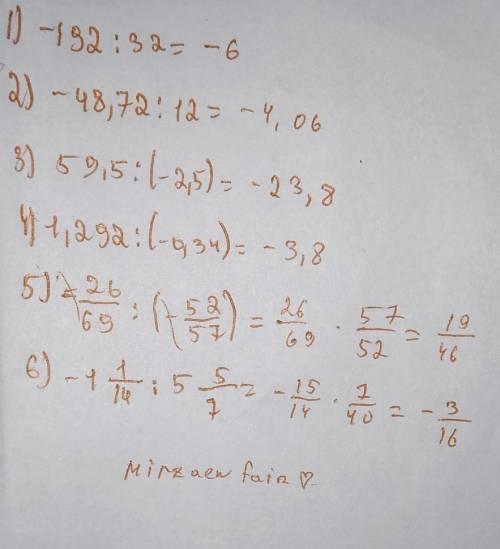 1) -192 : 32 = -6
2) -48,72 : 12 = -4,06
3) 59,5 : (-2,5) = -23,8
4) 1,292 : (-0,34) = -3,8
5) -26/69 : (-52/57) = 26/69 · 57/52 = 19/46
6) -1 1/14 : 5 5/7 = -15/14 · 7/40 = -3/16
Mirzaen fain ♡